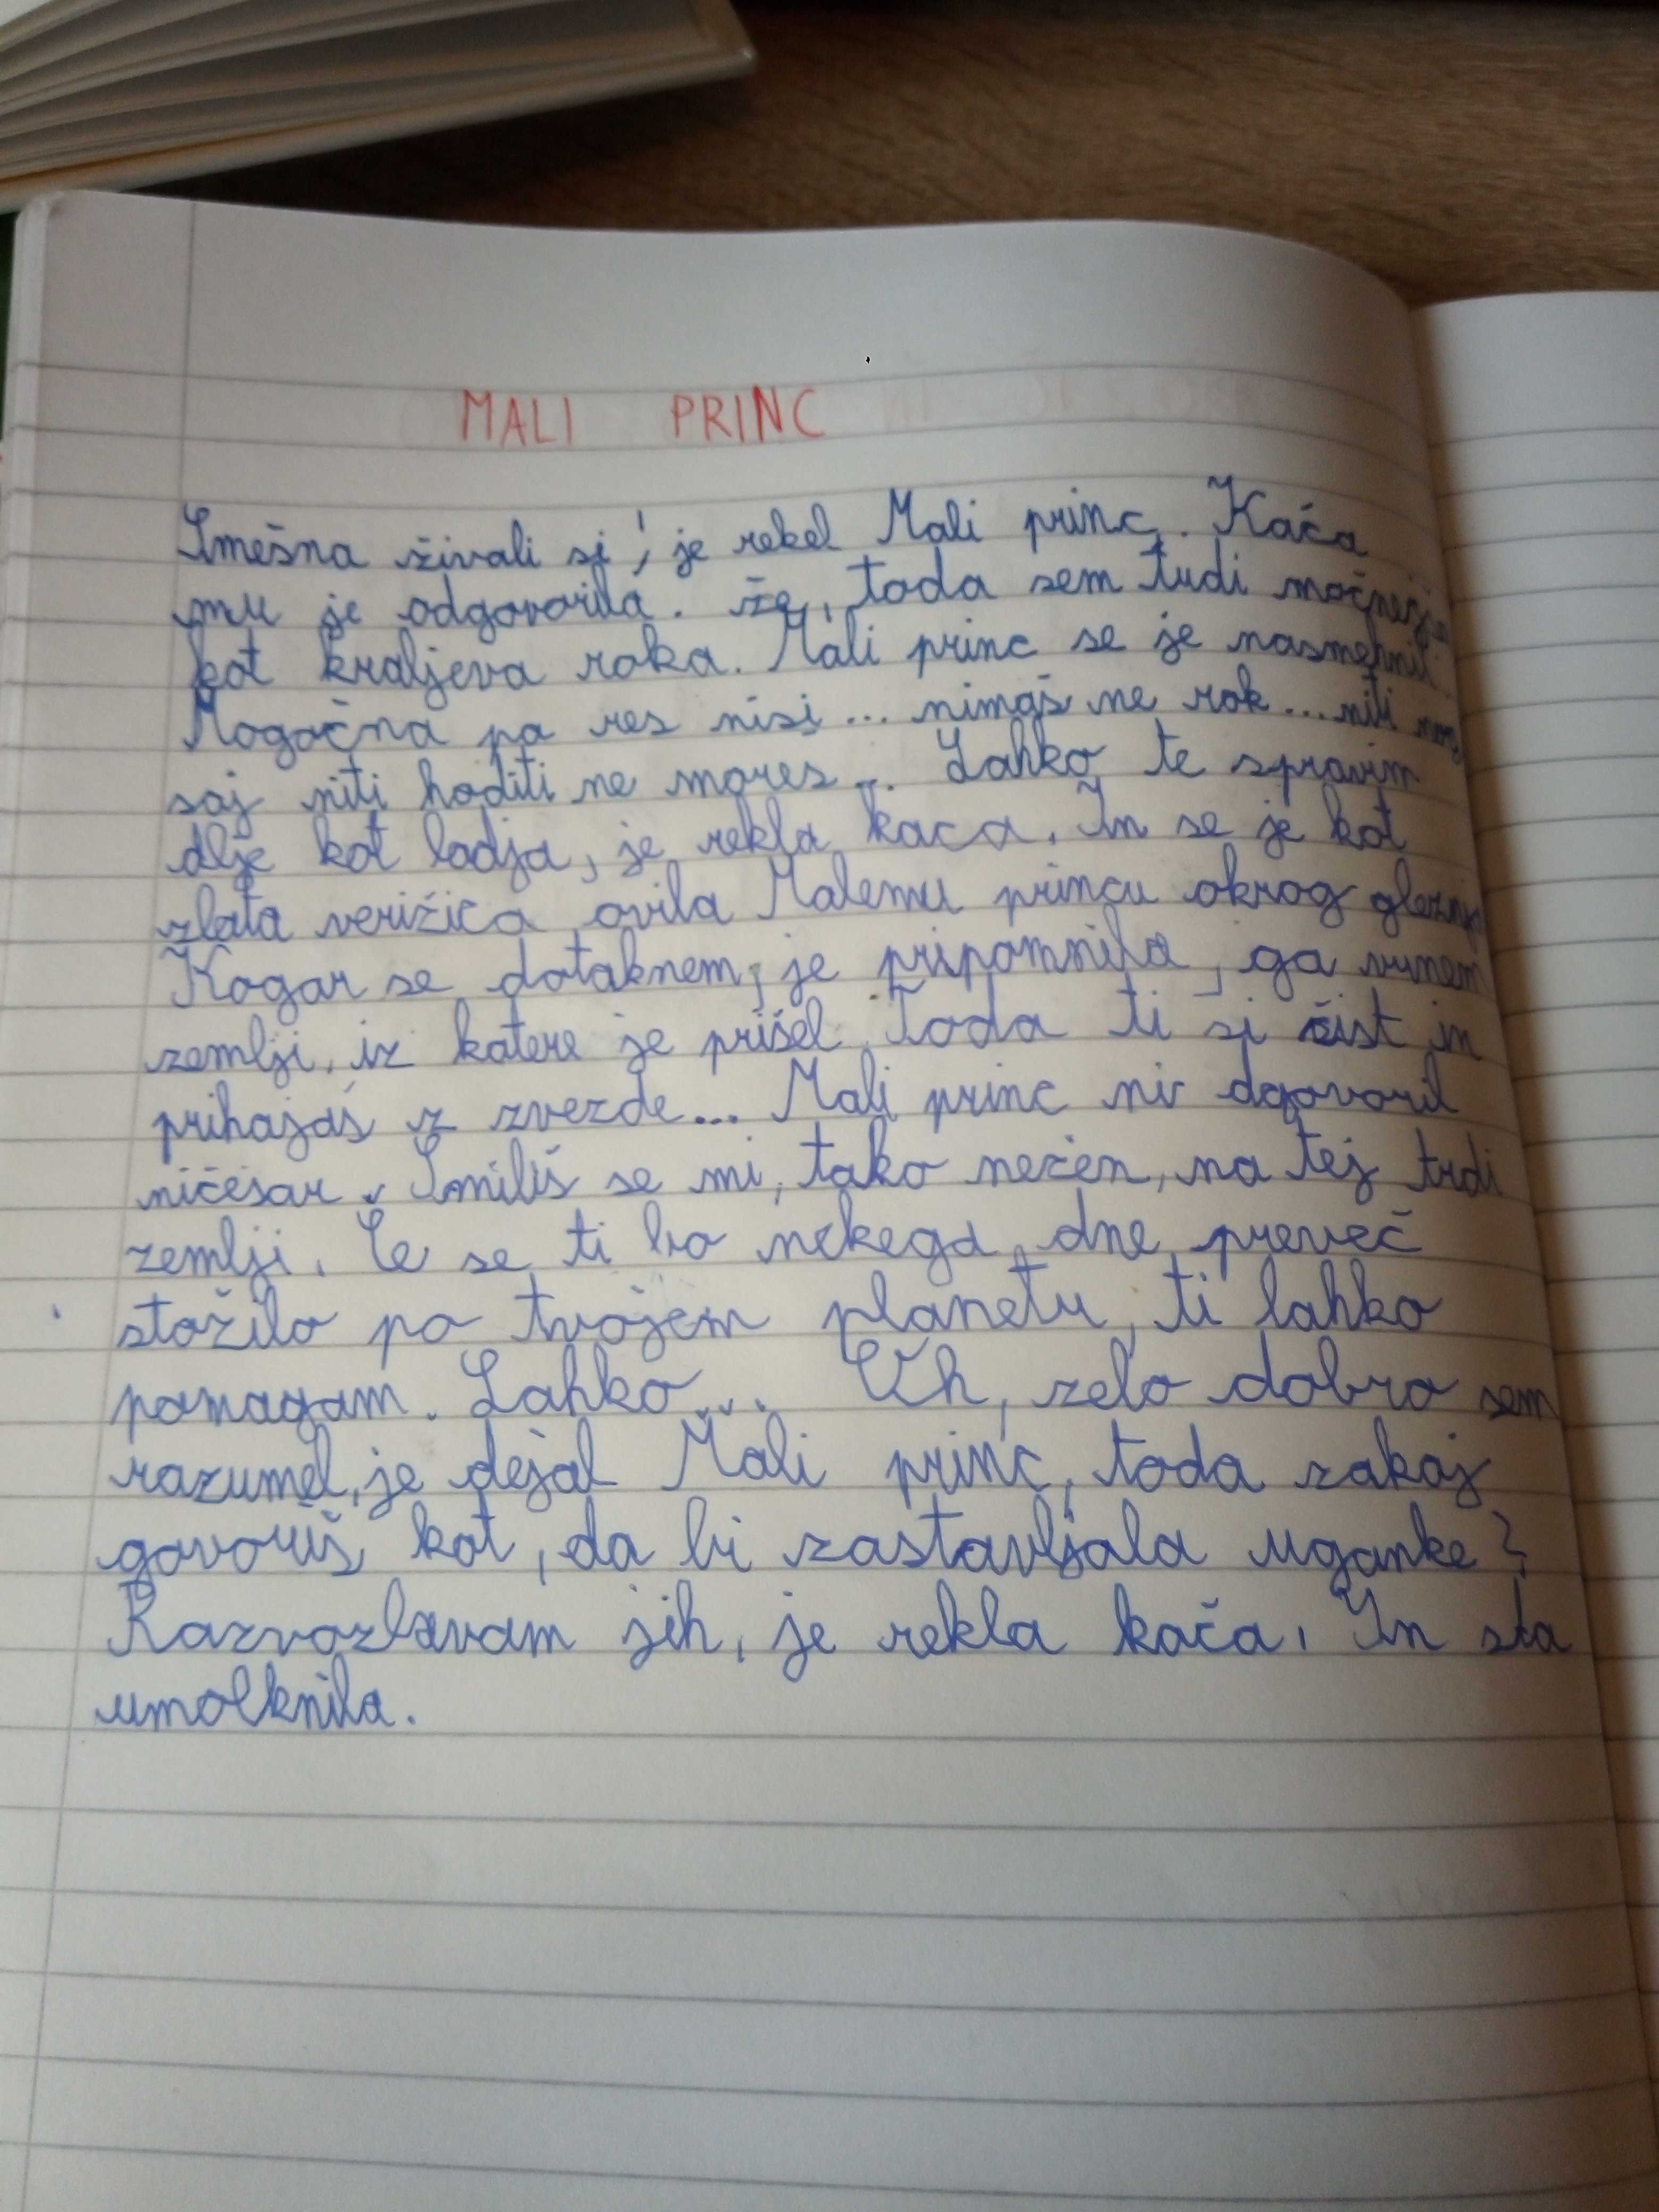 MALI PRINC
Smešna živali si, je rekel Mali princ. Kača
mu je odgovorila. že, toda sem tudi močnejša
kot kraljeva roka. Mali princ se je nasmehnil.
Mogočna pa res nisi... nimaš ne rok... niti nog
saj niti hoditi ne mores... Lahko te spravim
dlje kot ladja, je rekla kaca. In se je kot
zlata verižica ovila Malemu princu okrog gležnja
Kogar se dotaknem, je pripomnila, ga vrnem
zemlji, iz katere je prišel. Toda ti si čist in
prihajaš z zvezde... Mali princ ni dgovoril
ničesar. Smiliš se mi, tako nežen, na tej trdi
zemlji. Če se ti bo nekega dne preveč
stožilo po tvojem planetu, ti lahko
pomagam. Lahko... Uh, zelo dobro sem
razumel, je dejal Mali princ, toda zakaj
govoriš kot, da bi zastavljala uganke?
Razvozlavam jih, je rekla kača. In sta
umolknila.